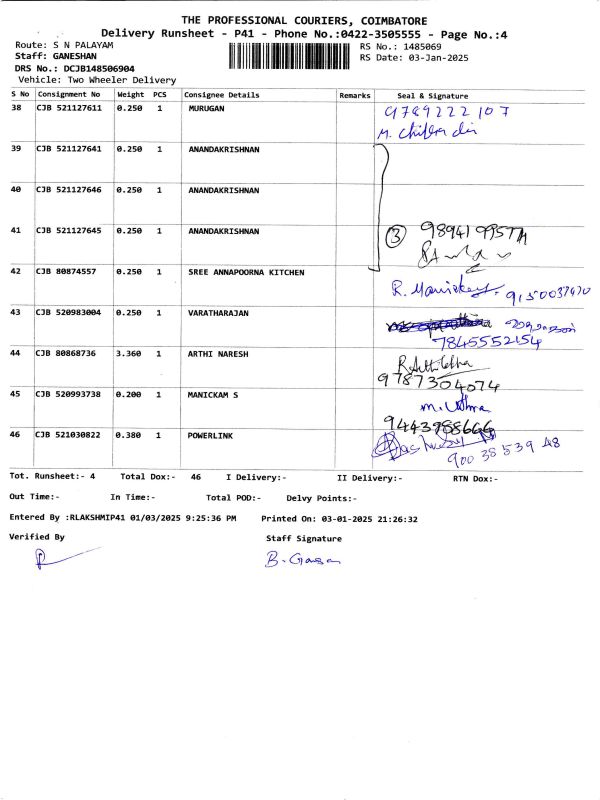 THE PROFESSIONAL COURIERS, COIMBATORE
Delivery Runsheet - P41 - Phone No.:0422-3505555 - Page No.:4
Route: S N PALAYAM RS No.: 1485069
Staff: GANESHAN RS Date: 03-Jan-2025
DRS No.: DCJB148506904
Vehicle: Two Wheeler Delivery
S No Consignment No Weight PCS Consignee Details Remarks Seal & Signature
38 CJB 521127611 0.250 1 MURUGAN 9789222107
39 CJB 521127641 0.250 1 ANANDAKRISHNAN
40 CJB 521127646 0.250 1 ANANDAKRISHNAN
41 CJB 521127645 0.250 1 ANANDAKRISHNAN 3
42 CJB 80874557 0.250 1 SREE ANNAPOORNA KITCHEN
43 CJB 520983004 0.250 1 VARATHARAJAN
7845552154
44 CJB 80868736 3.360 1 ARTHI NARESH
9787304074
45 CJB 520993738 0.200 1 MANICKAM S
9443988666
46 CJB 521030822 0.380 1 POWERLINK
900 38 539 48
Tot. Runsheet:- 4 Total Dox:- 46 I Delivery:- II Delivery:- RTN Dox:-
Out Time:- In Time:- Total POD:- Delvy Points:-
Entered By :RLAKSHMIP41 01/03/2025 9:25:36 PM Printed On: 03-01-2025 21:26:32
Verified By Staff Signature